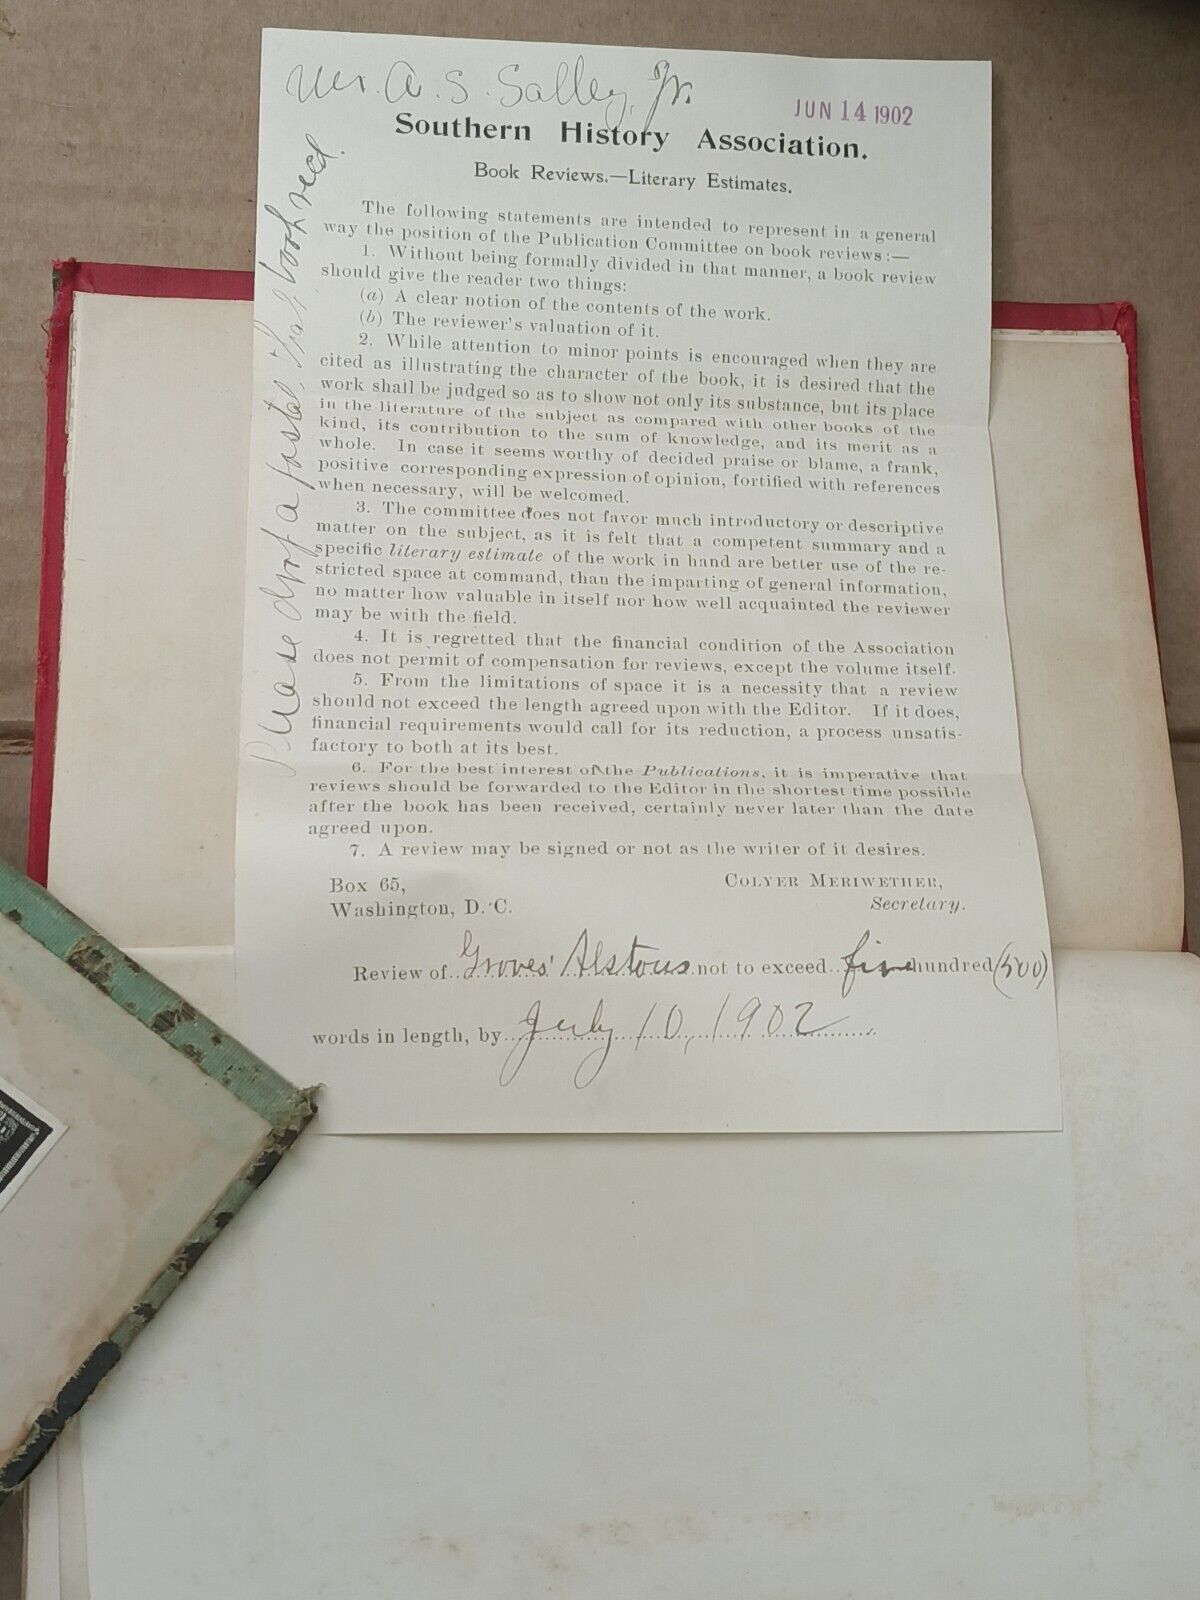 Mr. A. S. Salley, Jr.
JUN 14 1902
Southern History Association.
Book Reviews.—Literary Estimates.
The following statements are intended to represent in a general
way the position of the Publication Committee on book reviews:—
1. Without being formally divided in that manner, a book review
should give the reader two things:
(a) A clear notion of the contents of the work.
(b) The reviewer's valuation of it.
2. While attention to minor points is encouraged when they are
cited as illustrating the character of the book, it is desired that the
work shall be judged so as to show not only its substance, but its place
in the literature of the subject as compared with other books of the
kind, its contribution to the sum of knowledge, and its merit as a
whole. In case it seems worthy of decided praise or blame, a frank,
positive corresponding expression of opinion, fortified with references
when necessary, will be welcomed.
3. The committee does not favor much introductory or descriptive
matter on the subject, as it is felt that a competent summary and a
specific literary estimate of the work in hand are better use of the re-
stricted space at command, than the imparting of general information,
no matter how valuable in itself nor how well acquainted the reviewer
may be with the field.
4. It is regretted that the financial condition of the Association
does not permit of compensation for reviews, except the volume itself.
5. From the limitations of space it is a necessity that a review
should not exceed the length agreed upon with the Editor. If it does,
financial requirements would call for its reduction, a process unsatis-
factory to both at its best.
6. For the best interest of the Publications, it is imperative that
reviews should be forwarded to the Editor in the shortest time possible
after the book has been received, certainly never later than the date
agreed upon.
7. A review may be signed or not as the writer of it desires.
Box 65,
Washington, D. C.
COLYER MERIWETHER,
Secretary.
Review of Groves' Alstons not to exceed five hundred (500)
words in length, by July 10, 1902
Please drop a postal that book recd.